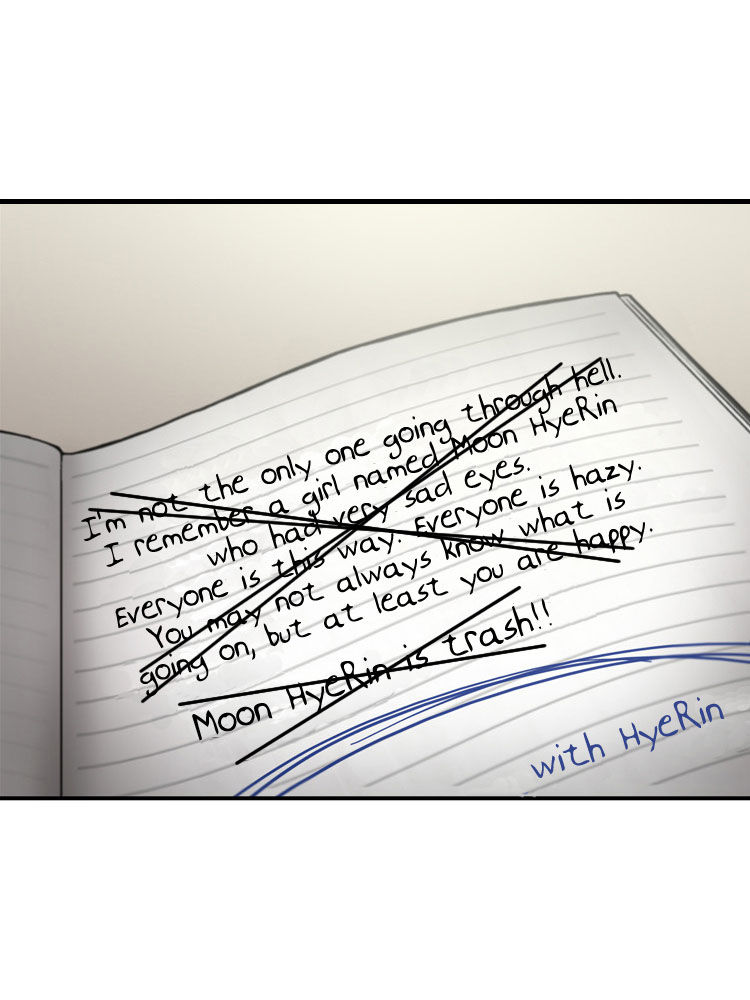 I'm not the only one going through hell.
I remember a girl named Moon HyeRin
who had very sad eyes.
Everyone is this way. Everyone is hazy.
You may not always know what is
going on, but at least you are happy.
Moon HyeRin is trash!!
with HyeRin